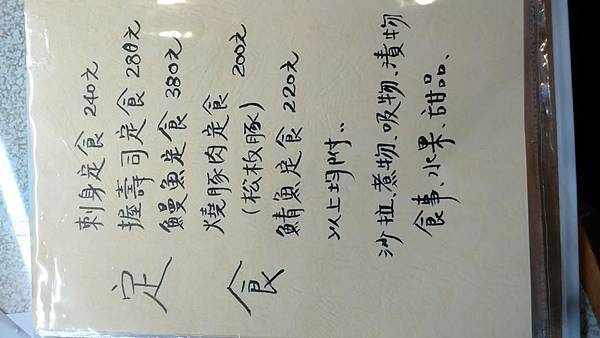 定食
刺身定食 240元
握壽司定食 280元
鰻魚定食 380元
燒豚肉定食 200元
(松板豚)
鯖魚定食 220元
以上均附、、
沙拉、煮物、吸物、漬物
食事、水果、甜品、